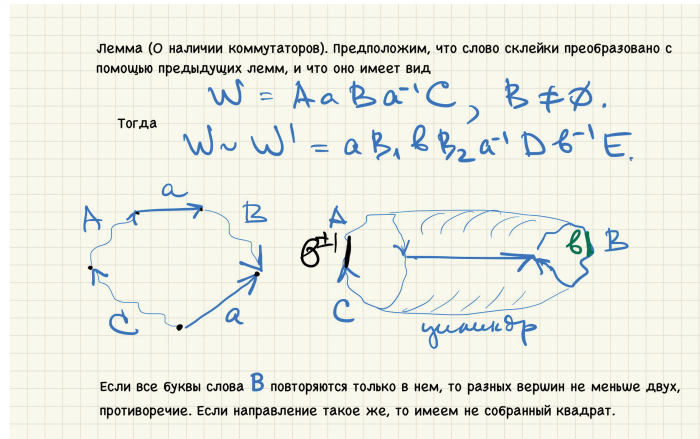 Лемма (О наличии коммутаторов). Предположим, что слово склейки преобразовано с
помощью предыдущих лемм, и что оно имеет вид
W = A a B a⁻¹ C, B ≠ ∅.
Тогда
W ~ W' = a B₁ b B₂ a⁻¹ D b⁻¹ E.
a
A
B
C
a
A
b±1
C
b
B
цилиндр
Если все буквы слова B повторяются только в нем, то разных вершин не меньше двух,
противоречие. Если направление такое же, то имеем не собранный квадрат.